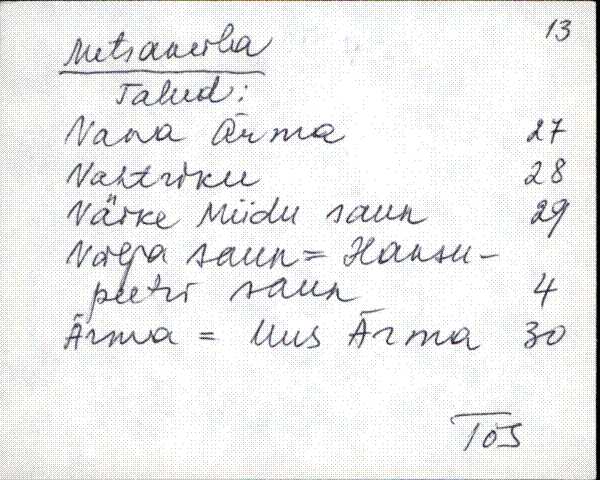 13
Metsanurka
Talud:
Vana Ärma 27
Vahtriku 28
Väike Miidu saun 29
Välja saun = Hansu-
peetri saun 4
Ärma = Uus Ärma 30
Tõs